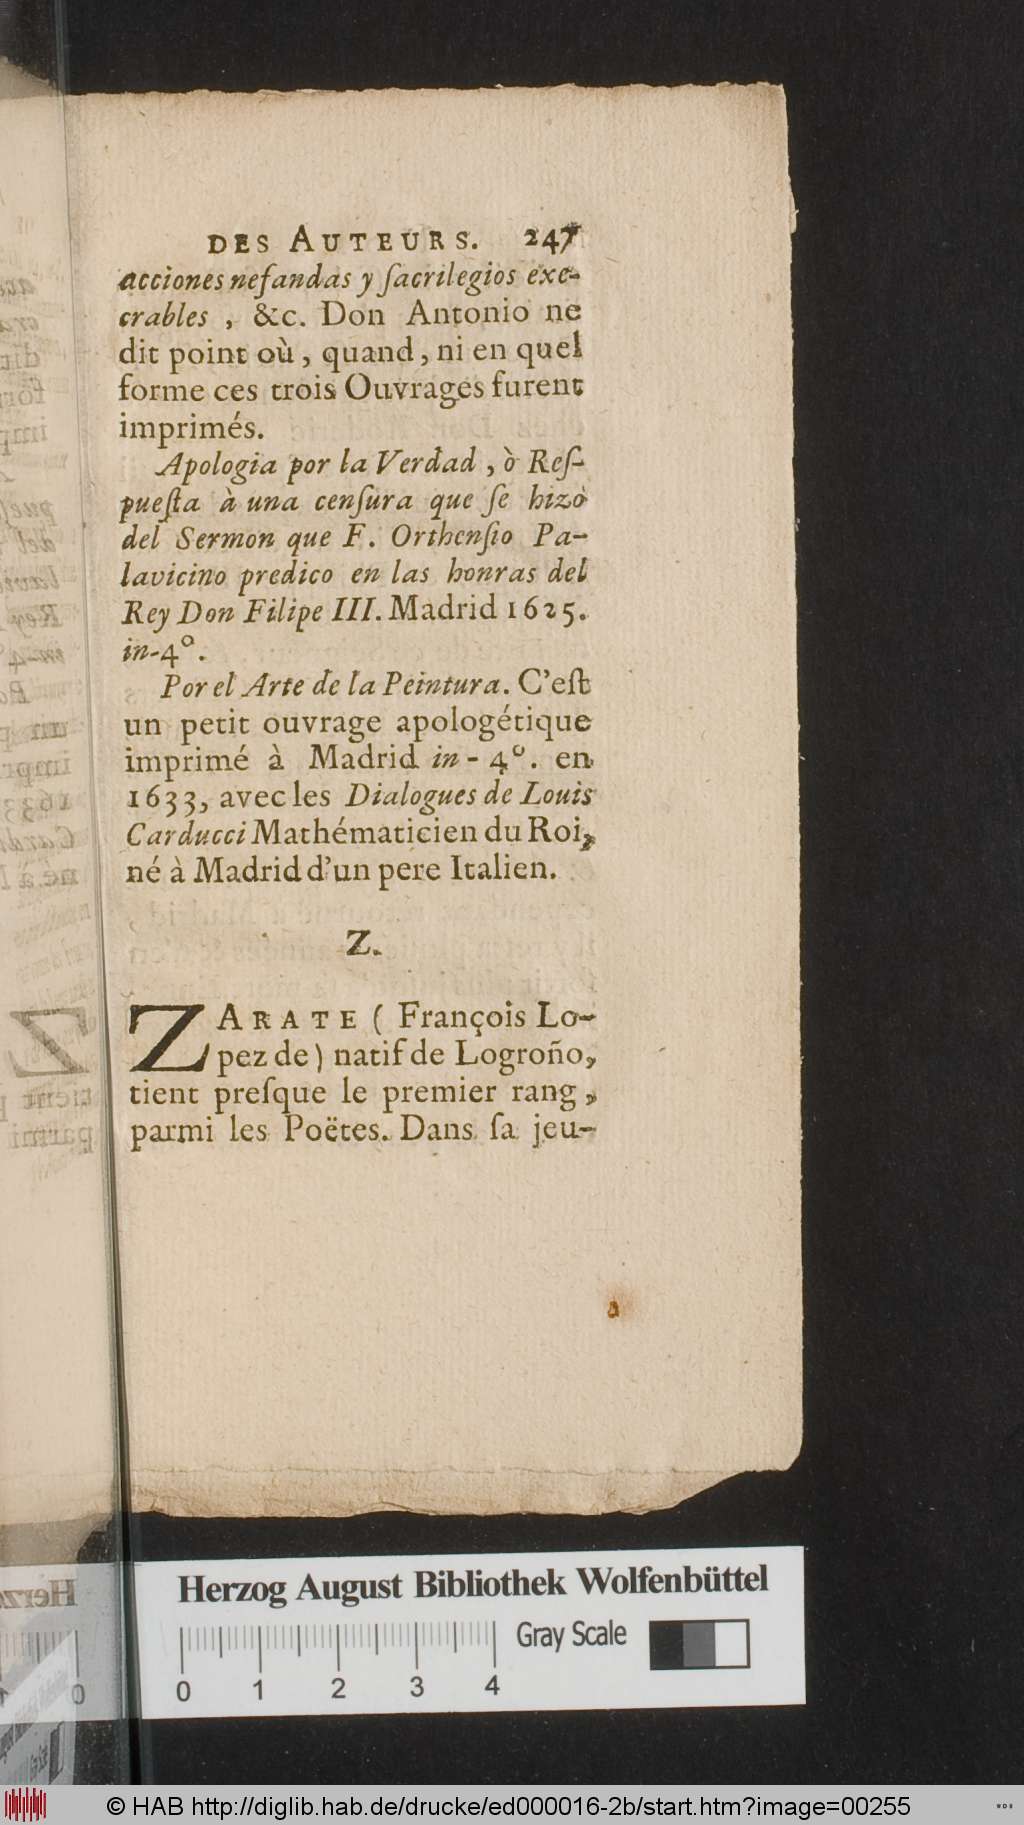 DES AUTEURS. 247
acciones nefandas y ſacrilegios exe-
crables , &c. Don Antonio ne
dit point où, quand, ni en quel
forme ces trois Ouvrages furent
imprimés.
Apologia por la Verdad, ò Reſ-
pueſta à una cenſura que ſe hizò
del Sermon que F. Orthenſio Pa-
lavicino predico en las honras del
Rey Don Filipe III. Madrid 1625.
in-4°.
Por el Arte de la Peintura. C'eſt
un petit ouvrage apologétique
imprimé à Madrid in-4°. en
1633, avec les Dialogues de Louis
Carducci Mathématicien du Roi,
né à Madrid d'un pere Italien.
Z.
ZARATE ( François Lo-
pez de ) natif de Logroño,
tient preſque le premier rang,
parmi les Poëtes. Dans ſa jeu-
Herzog August Bibliothek Wolfenbüttel
Gray Scale
0 1 2 3 4
© HAB http://diglib.hab.de/drucke/ed000016-2b/start.htm?image=00255